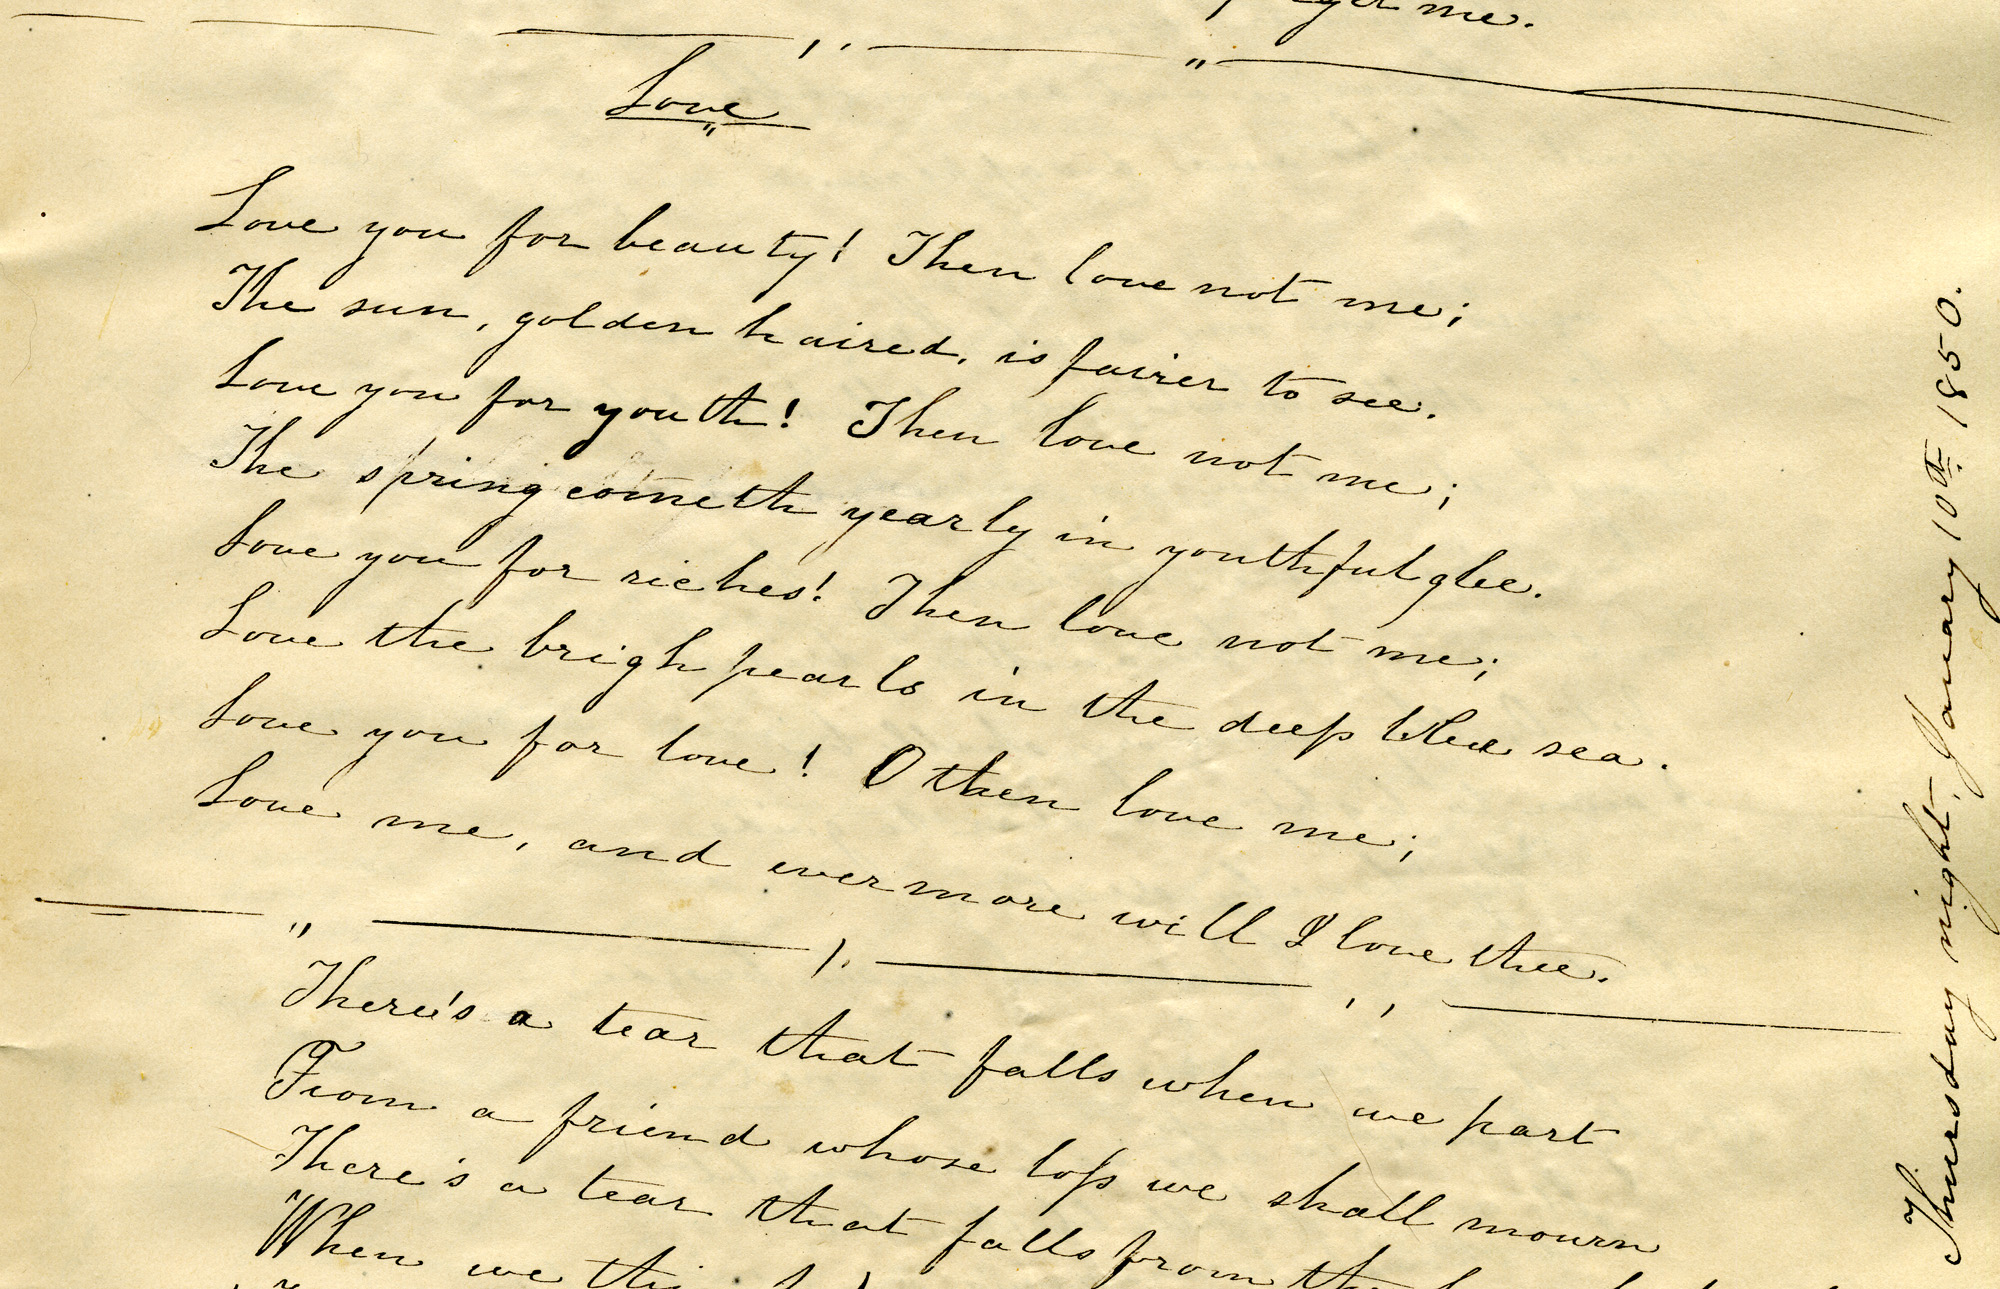 me.
Love
Love you for beauty! Then love not me;
The sun, golden haired, is fairer to see.
Love you for youth! Then love not me;
The spring cometh yearly in youthful glee.
Love you for riches! Then love not me;
Love the brigh pearls in the deep blue sea.
Love you for love! O then love me;
Love me, and evermore will I love thee.
There's a tear that falls when we part
From a friend whose loss we shall mourn
There's a tear that falls from the
When we
Thursday night, January 10th. 1850.